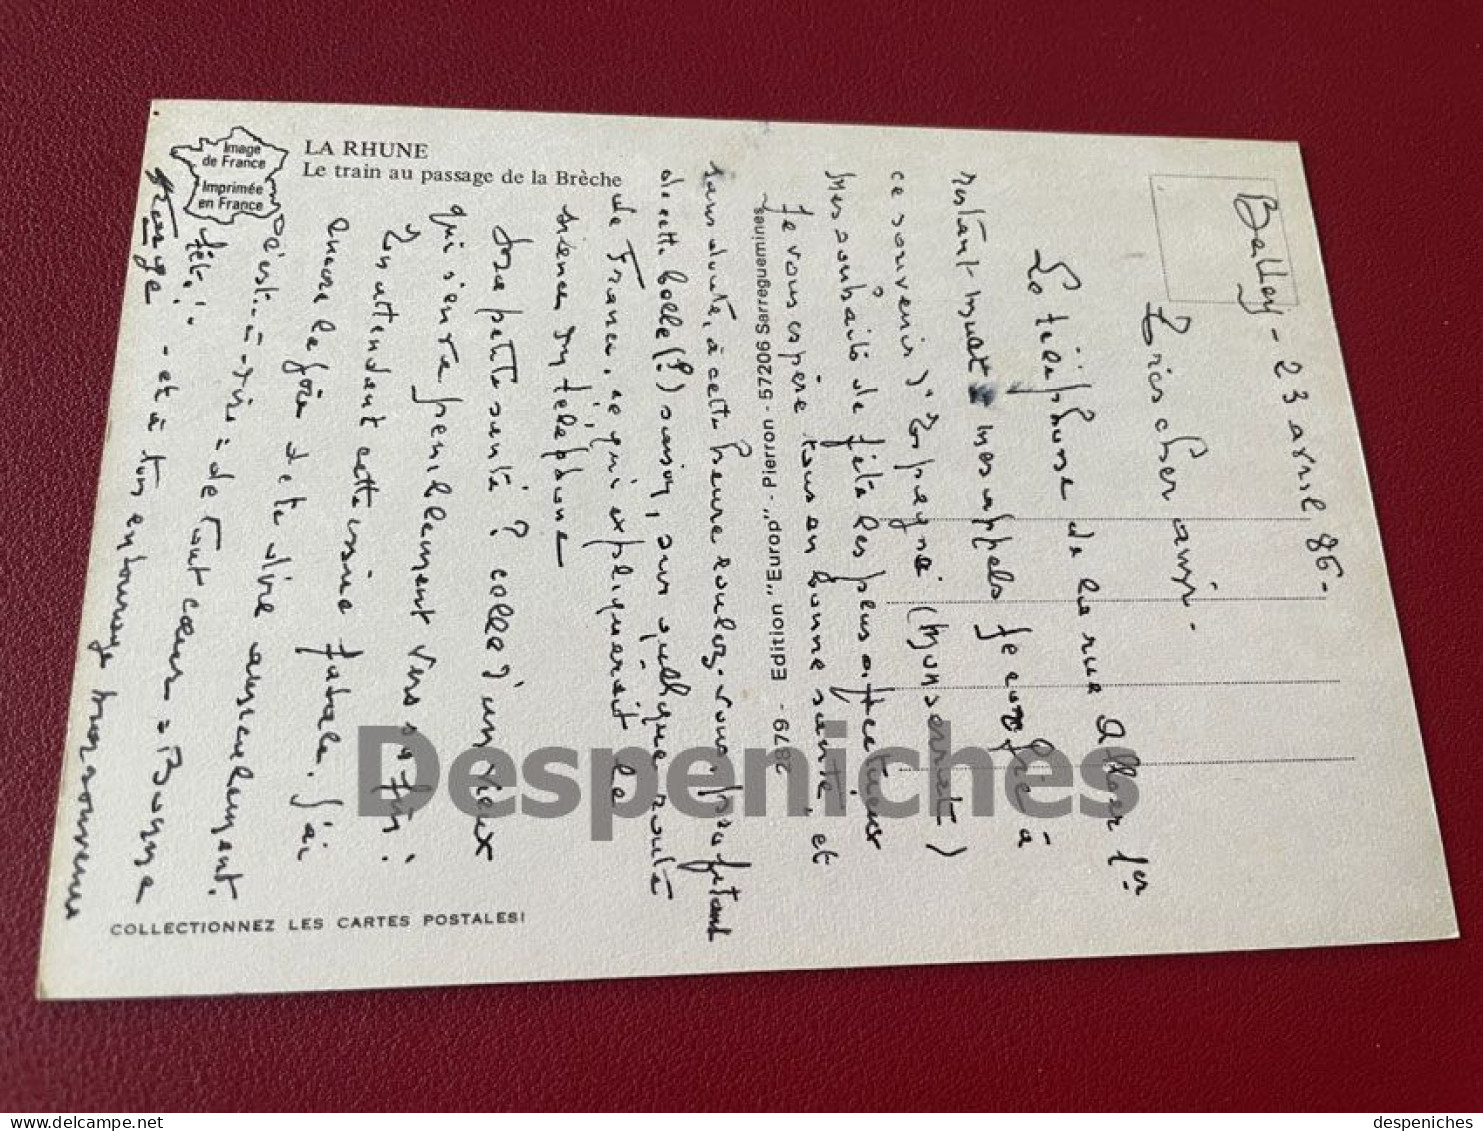 Image
de France
Imprimée
en France
LA RHUNE
Le train au passage de la Brèche
26879 - Edition "Europ" - Pierron - 57206 Sarreguemines
COLLECTIONNEZ LES CARTES POSTALES!
23 avril 86 -
cher ami -
Le téléphone de la rue Albert 1er
restant muet à mes appels je confie à
ce souvenir d'Espagne (
mes souhaits de fête les plus affectueux
Je vous espère tous en bonne santé, et
sans doute, à cette heure , profitant
de cette belle (?) saison, sur quelque route
de France, ce qui expliquerait le
silence du téléphone
Ma petite santé ? celle d'un vieux
qui s'en va péniblement vers sa fin !
En attendant cette issue fatale, j'ai
encore la joie de te dire ,
c'est-à-dire = de tout cœur = Bonne
fête ! - et à ton entourage mon souvenir
Despeniches
www.delcampe.net
despeniches